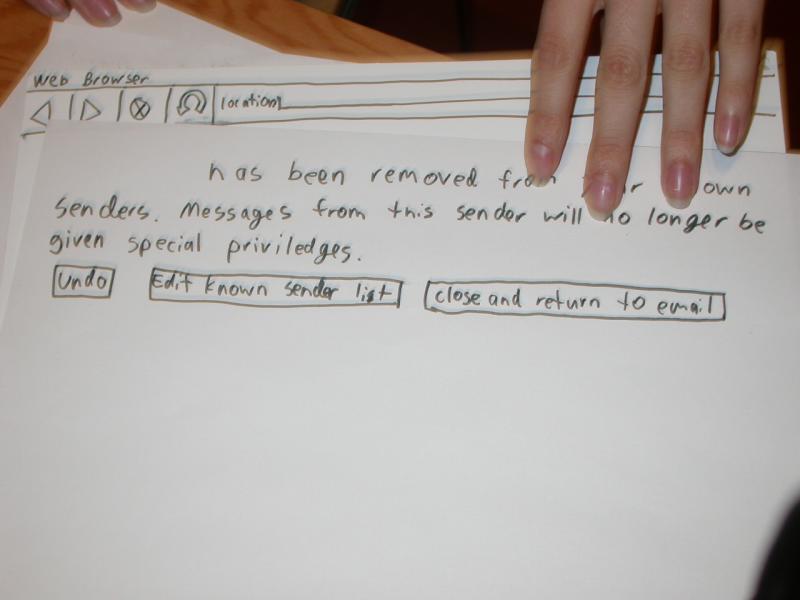 Web Browser
location
has been removed from own
senders. Messages from this sender will no longer be
given special priviledges.
Undo Edit known sender list close and return to email